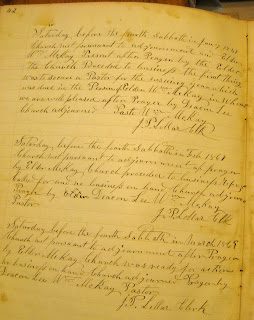 42
Saturday before the fourth Sabbath in January 1869
Church met pursuant to adjournment and Elder
Wm McKay Present after Prayer by the Elder
the Church Proceded to business the first thing
was to chosen a Pastor for the ensuing year which
was done in the Person of Elder Wm McKay in which
we are well pleased after Prayer by Deacon Lee
Church adjourned Pastor Wm McKay
J P Lollar Clk
Saturday before the fourth Sabbath in Feb 1869
Church met pursuant to adjournment after prayer
by Elder McKay Church proceeded to business
called for and no business on hand Church adjourned
Prayer by Deacon Lee Wm McKay
Pastor J P Lollar Clk
Saturday before the fourth Sabbath in March 1869
Church met pursuant to adjournment after Prayer
by Elder McKay Church was ready for
no business on hand Church adjourned Prayer by
Deacon Lee Wm McKay Pastor
J P Lollar Clerk